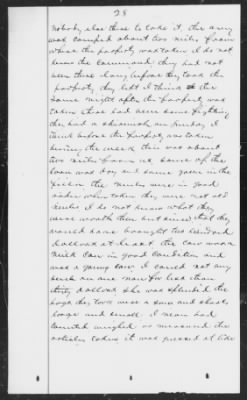 28
nobody else there to take it. the army
was camped about two miles from
where the property was taken I do not
know the Command they had not
been there long before they took the
property they left I think the
same night after the property was
taken there had been some fighting
they had a skirmish on Sunday I
think before the property was taken
during the week this was about
two miles from us some of the
corn was dry and some green in the
field the mules were in good
order when taken they were not old
mules I do not know what they
were worth then but since that they
would have brought two hundred
dollars at least the cow was a
milk cow in good condition and
was a young cow I could not buy
such an one now for less than
thirty dollars she was splendid the
hogs they took were a sow and shoats
large and small I mean had
counted weighed or measured the
articles taken it was guessed at like